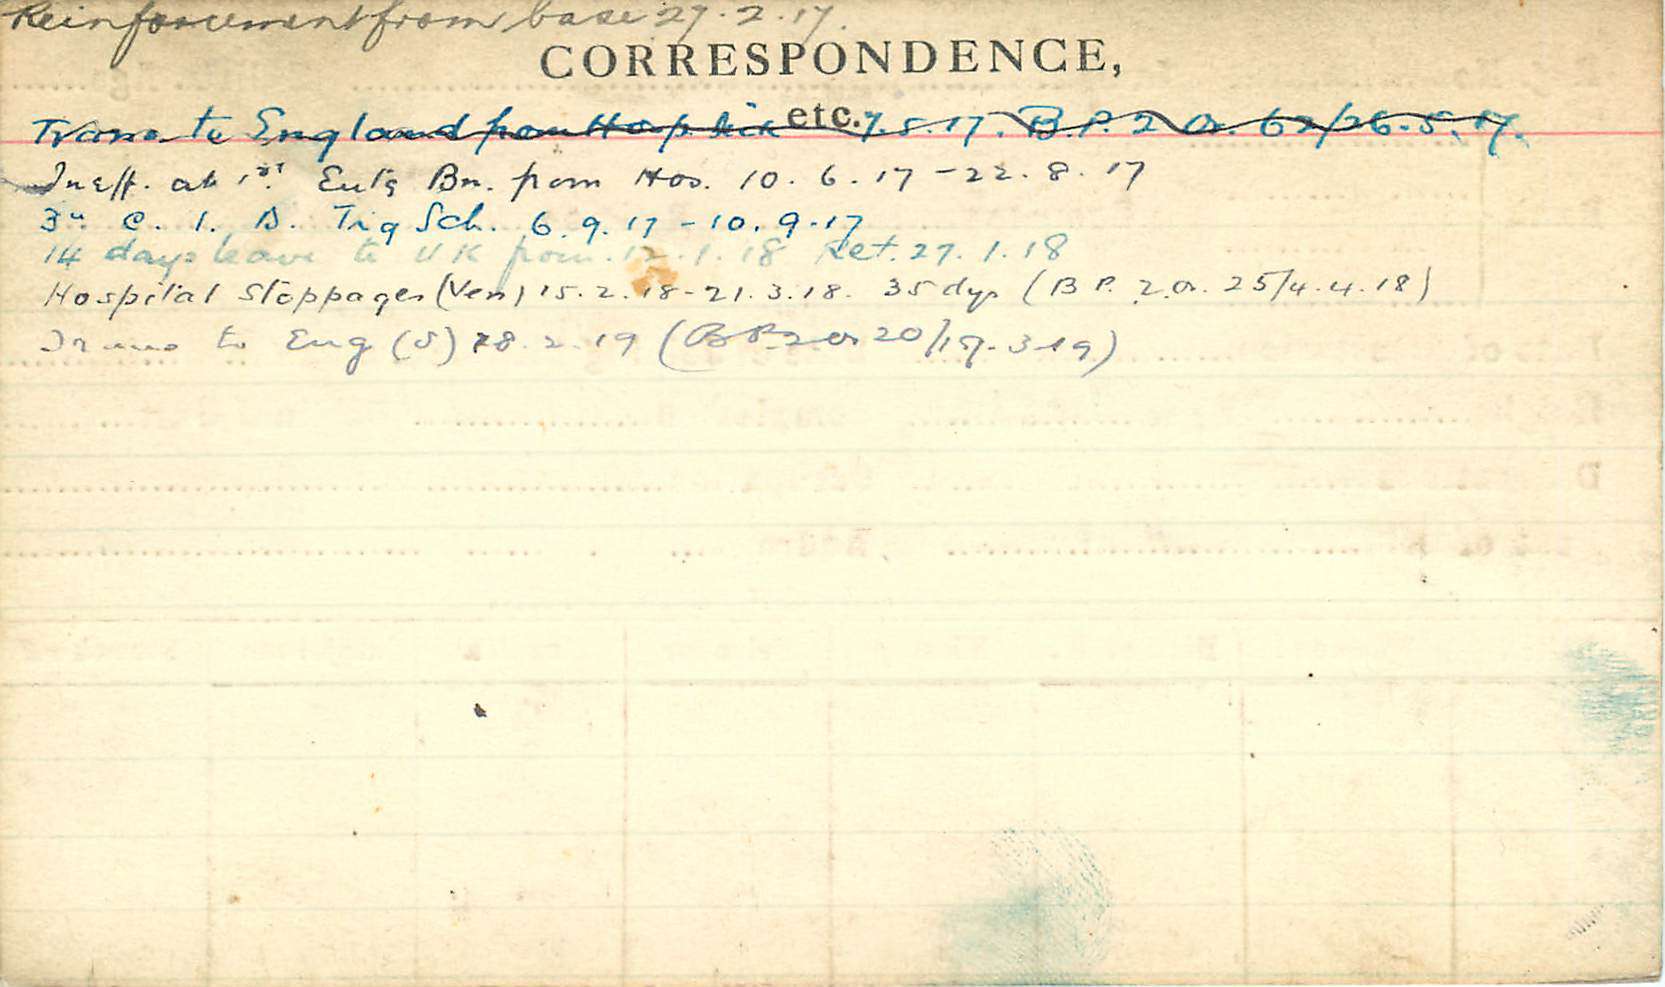 Reinforcement from base 27.2.17.
CORRESPONDENCE,
etc.
Trans to England from Hosp sick 7.5.17. B.P. 2 Or. 62/26.5.17.
Ineff. at 1st Ent'g Bn. from Hos. 10.6.17 - 22.8.17
3" C. I. B. Trg Sch. 6.9.17 - 10.9.17
14 days leave to UK from 12.1.18 Ret. 27.1.18
Hospital Stoppages (Ven) 15.2.18 - 21.3.18. 35 dys (B P. 2 Or. 25/4.4.18)
Trans to Eng (S) 28.2.19 (BP 2 Or 20/19.3.19)